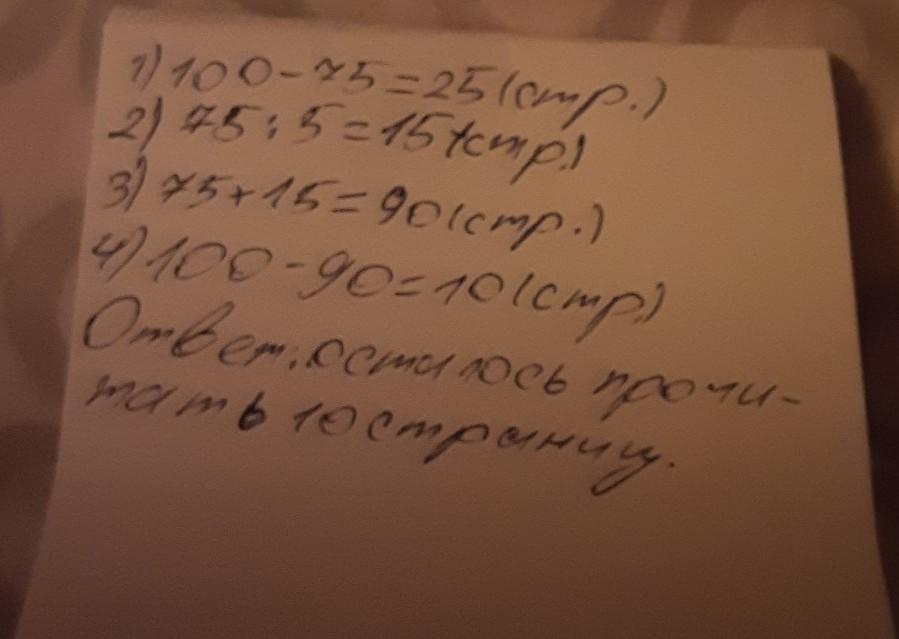 1) 100-75=25(стр.)
2) 75:5=15(стр.)
3) 75+15=90(стр.)
4) 100-90=10(стр.)
Ответ: осталось прочи-
тать 10 страниц.